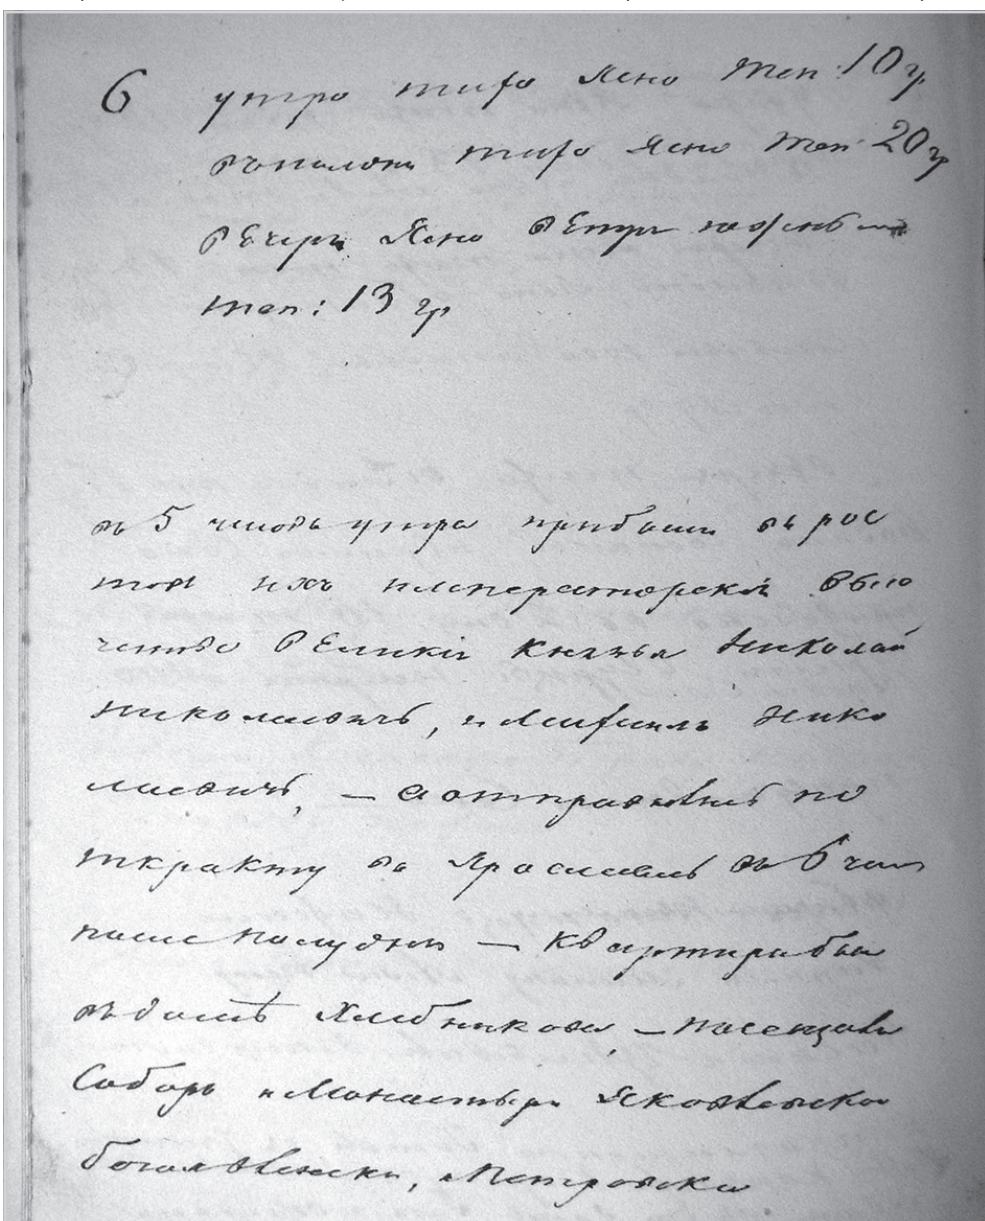 6 утро тихо Ясно теп: 10 гр
въполдни тихо Ясно теп: 20 гр
вЕчеръ Ясно вЕтръ
теп: 13 гр
въ 5 часовъ утра прибыли въ рос
товъ ихъ императорский высо
чество вЕликий князья Николай
николаевичь, и Михаилъ Нико
лаевичь, — а отправились по
ткракту во Ярославль въ 6 час
после полудни — квартира бы
въ домѣ Хлебникова — посещали
Соборъ и Монастыри Яковлевско
богоявленски, Петровски